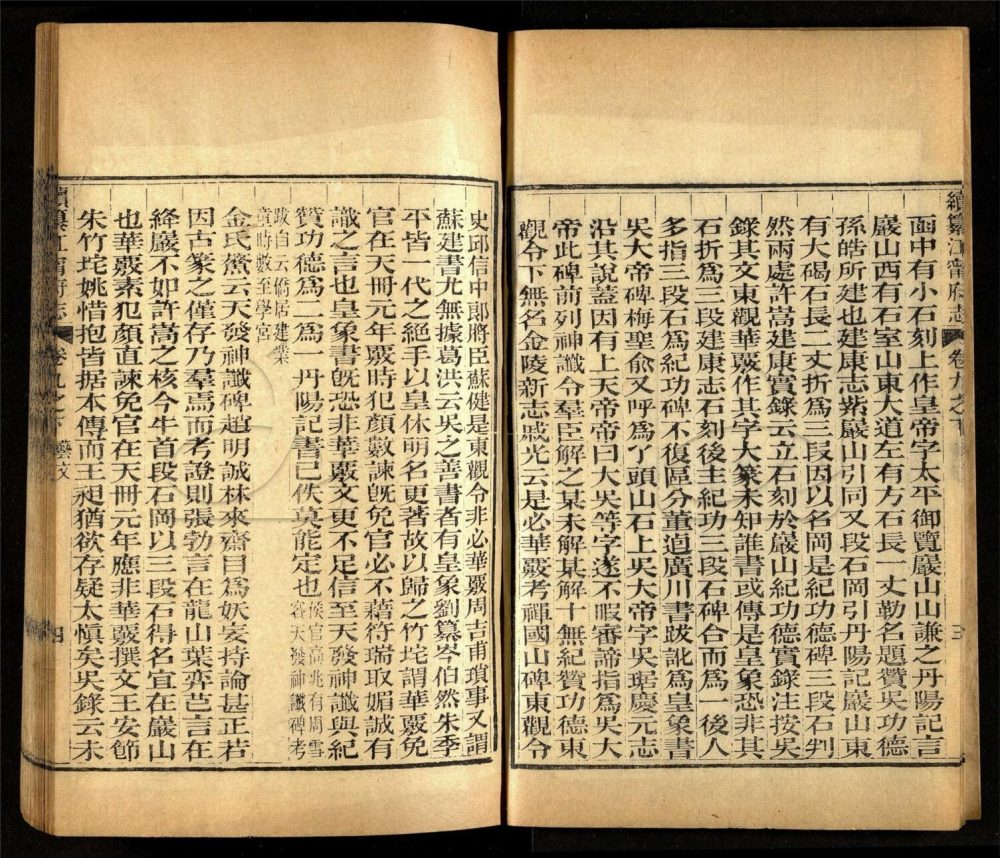 續纂江甯府志 卷九之下 三
面中有小石刻上作皇帝字太平御覽巖山山謙之丹陽記言
巖山西有石室山東大道左有方石長一丈勒名題贊吳功德
孫皓所建也建康志紫巖山引同又段石岡引丹陽記巖山東
有大碣石長二丈折爲三段因以名岡是紀功德碑三段石判
然兩處許嵩建康實錄云立石刻於巖山紀功德實錄注按吳
錄其文東觀華覈作其字大篆未知誰書或傳是皇象恐非其
石折爲三段建康志石刻後主紀功三段石碑合而爲一後人
多指三段石爲紀功碑不復區分董逌廣川書跋訛爲皇象書
吳大帝碑梅聖俞又呼爲丫頭山石上吳大帝字吳琚慶元志
沿其說蓋因有上天帝帝曰大吳等字遂不暇審諦指爲吳大
帝此碑前列神讖令羣臣解之某未解某解十無紀贊功德東
觀令下無名金陵新志戚光云是必華覈考禪國山碑東觀令
史邱信中郎將臣蘇健是東觀令非必華覈周吉甫瑣事又謂
蘇建書尤無據葛洪云吳之善書者有皇象劉纂岑伯然朱季
平皆一代之絕手以皇休明名更著故以歸之竹垞謂華覈免
官在天冊元年覈時犯顏數諫旣免官必不藉符瑞取媚誠有
識之言也皇象書旣恐非華覈文更不足信至天發神讖與紀
贊功德爲二爲一丹陽記書已佚莫能定也候官高兆有周雪客天發神讖碑考
跋自云僑居建業童時數至學宮
金氏鰲云天發神讖碑趙明誠林來齋目爲妖妄持論甚正若
因古篆之僅存乃羣焉而考證則張勃言在龍山葉弈苞言在
絳巖不如許嵩之核今牛首段石岡以三段石得名宜在巖山
也華覈素犯顏直諫免官在天冊元年應非華覈撰文王安節
朱竹垞姚惜抱皆据本傳而王昶猶欲存疑太慎矣吳錄云未
續纂江甯府志 卷九之下 藝文 四